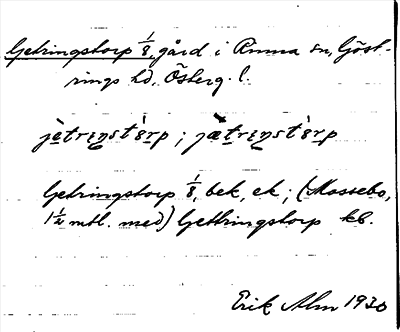 Getringstorp 1/8, gård i Rinna sn, Göst-
rings hd. Österg. l.
jètrɪŋst'ɵrp; jæ̀trɪŋst'ɵrp
Getringstorp 1/8, bek, ek; (Mossebo,
1 1/2 mtl. med) Gettringstorp kb.
Erik Alm 1930